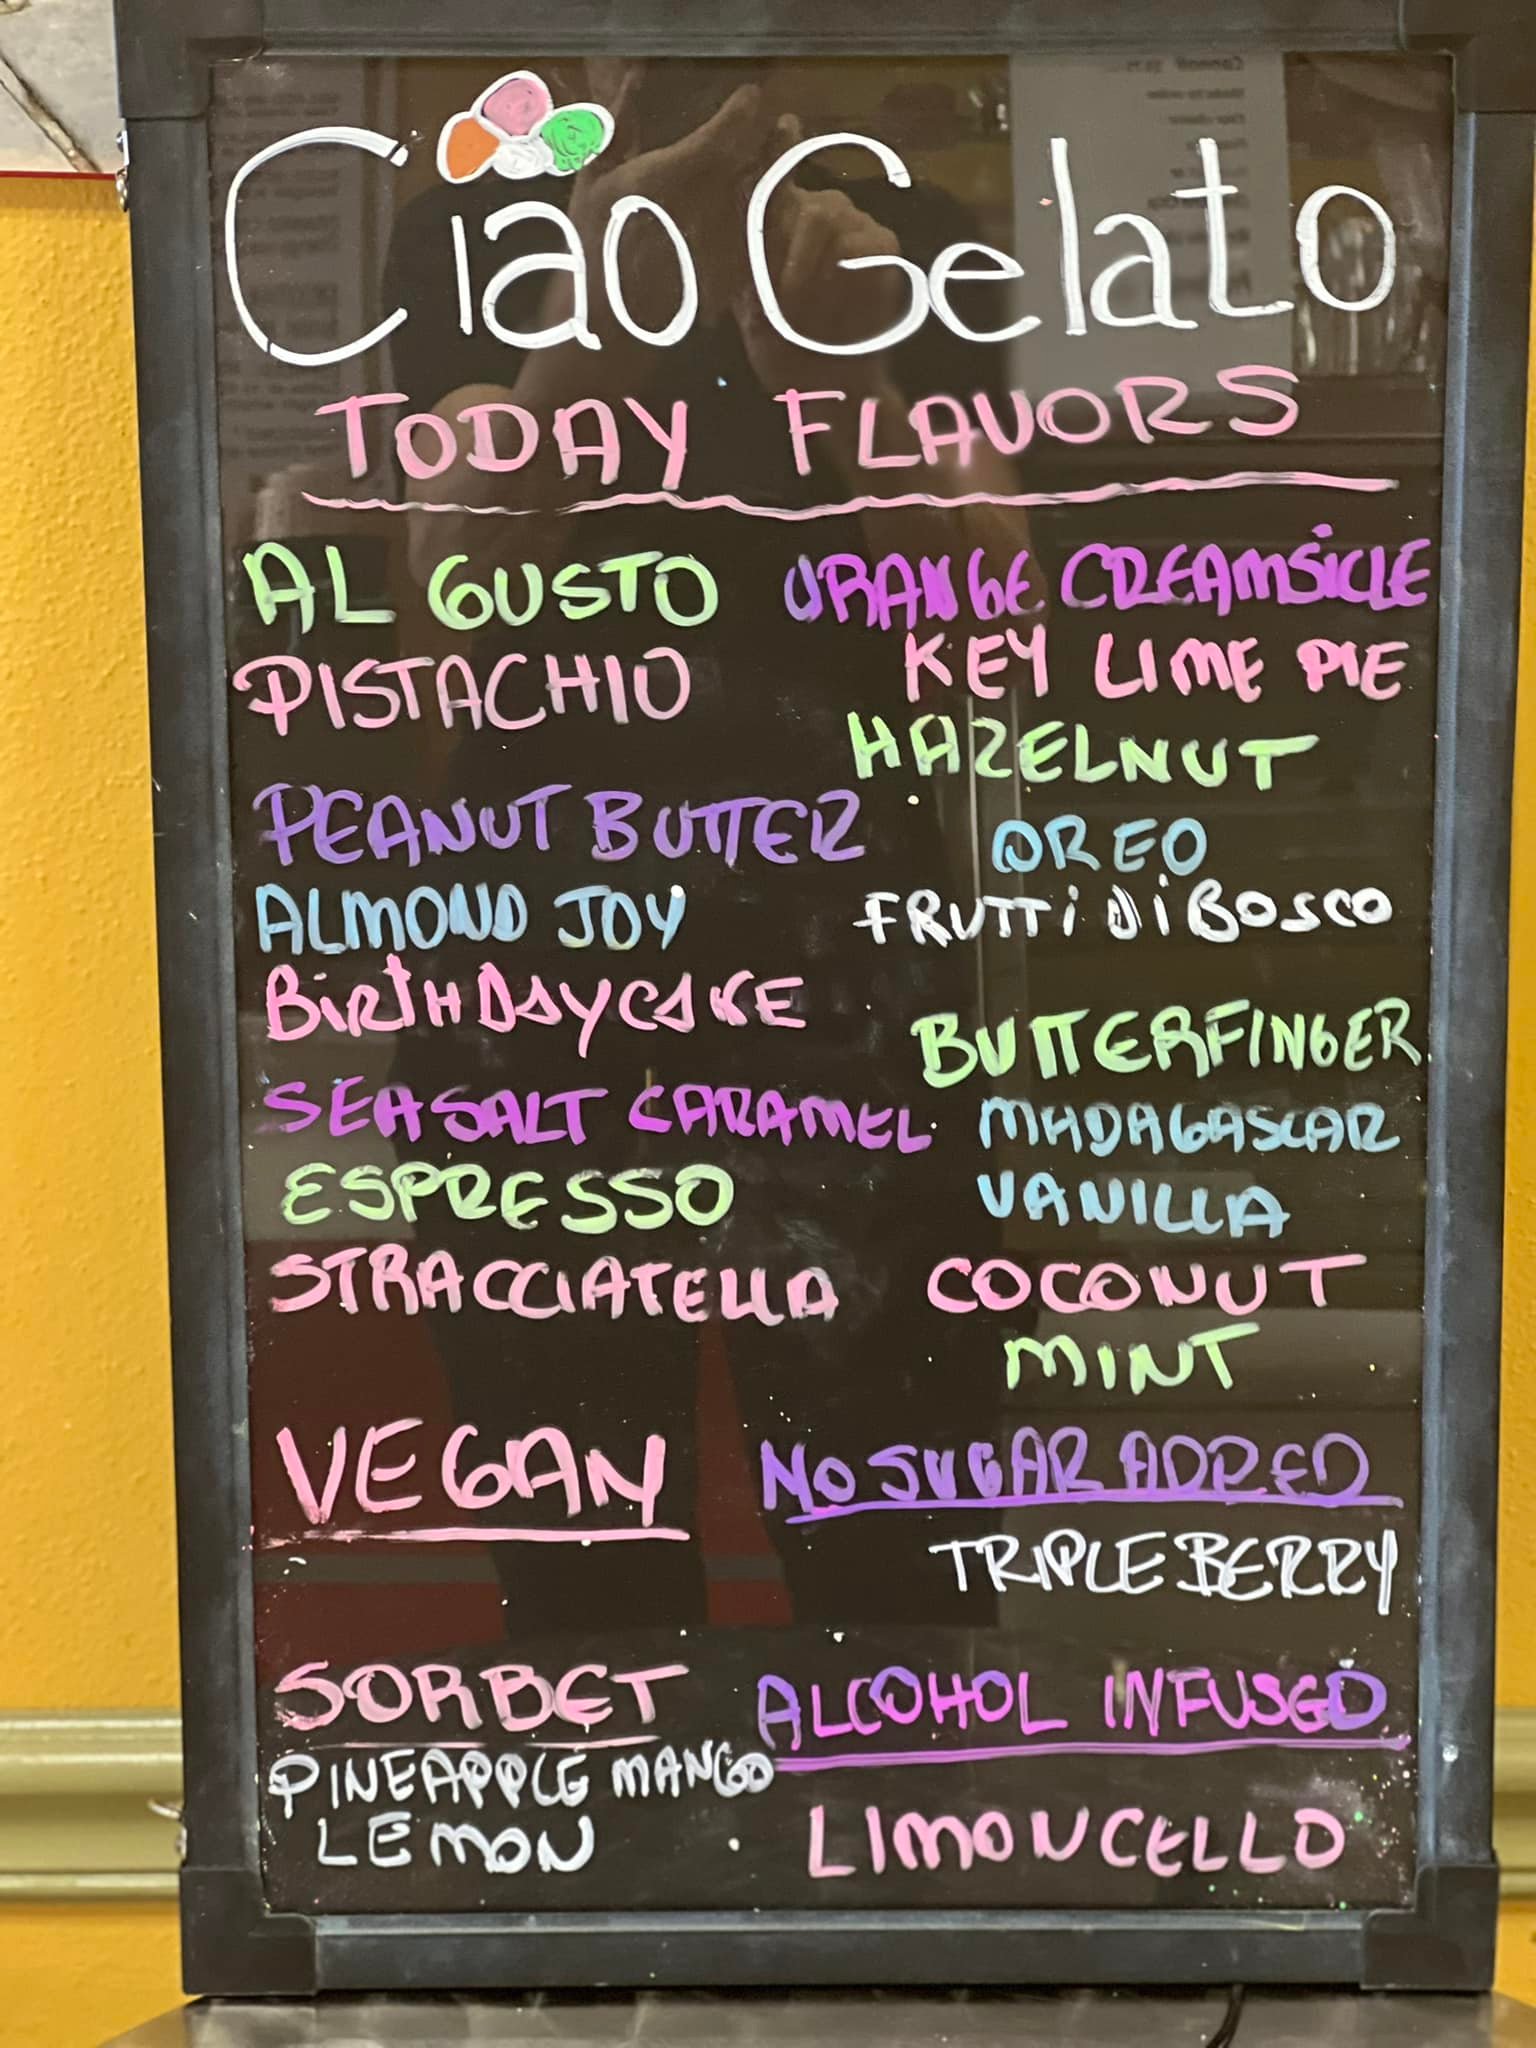 Ciao Gelato
TODAY FLAVORS
AL GUSTO
PISTACHIO
PEANUT BUTTER
ALMOND JOY
BIRTHDAY CAKE
SEA SALT CARAMEL
ESPRESSO
STRACCIATELLA
ORANGE CREAMSICLE
KEY LIME PIE
HAZELNUT
OREO
FRUTTI DI BOSCO
BUTTERFINGER
MADAGASCAR
VANILLA
COCONUT
MINT
VEGAN
NO SUGAR ADDED
TRIPLE BERRY
SORBET
PINEAPPLE MANGO
LEMON
ALCOHOL INFUSED
LIMONCELLO